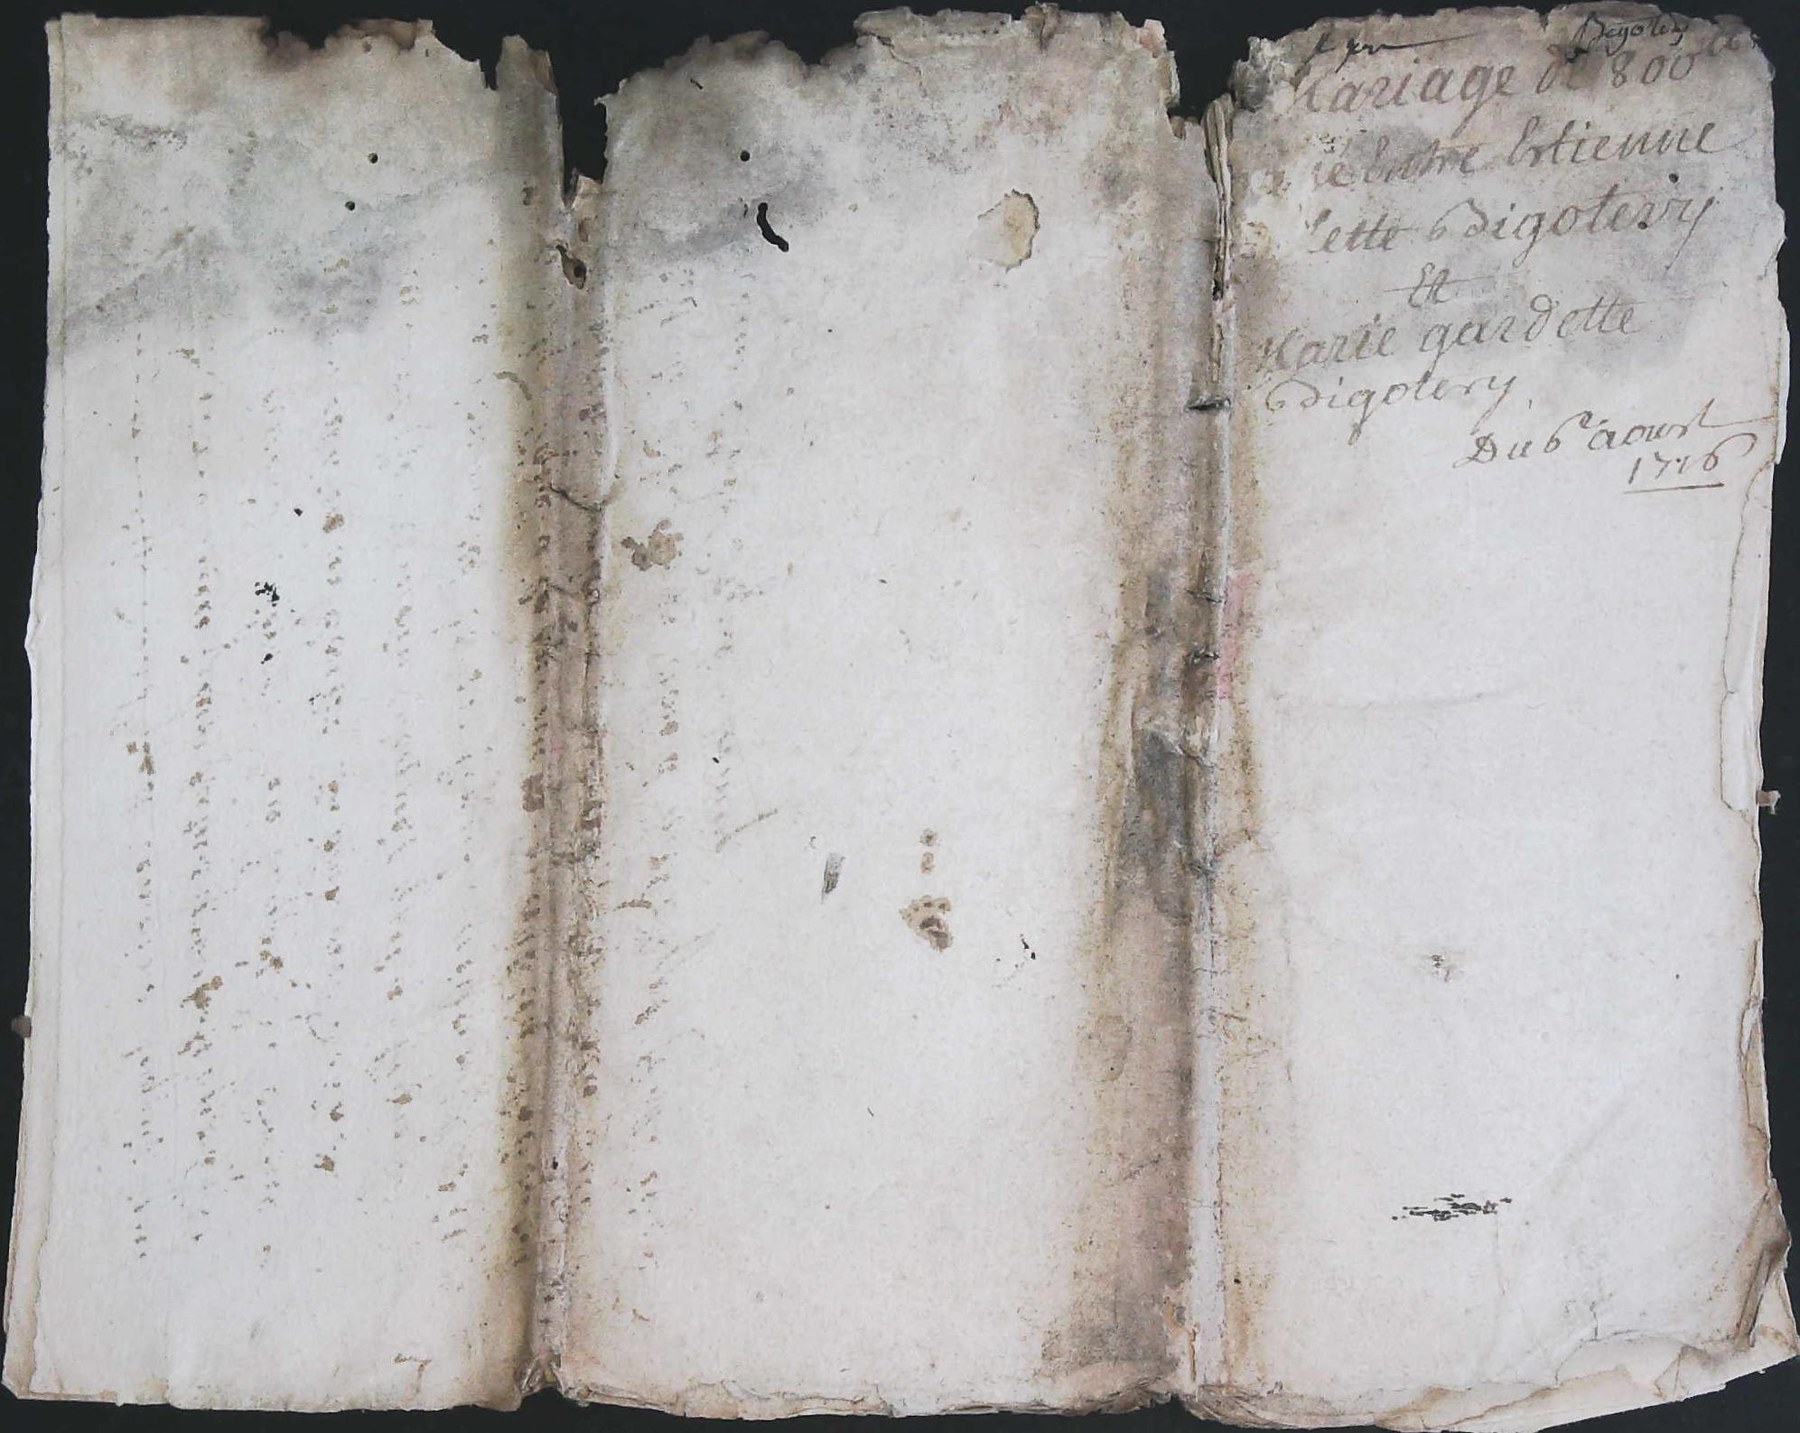 Bigotery
Mariage de 800 ll
Entre Estienne
lette Bigotery
Et
Marie gardette
Bigotery
Du 6e aoust
1716